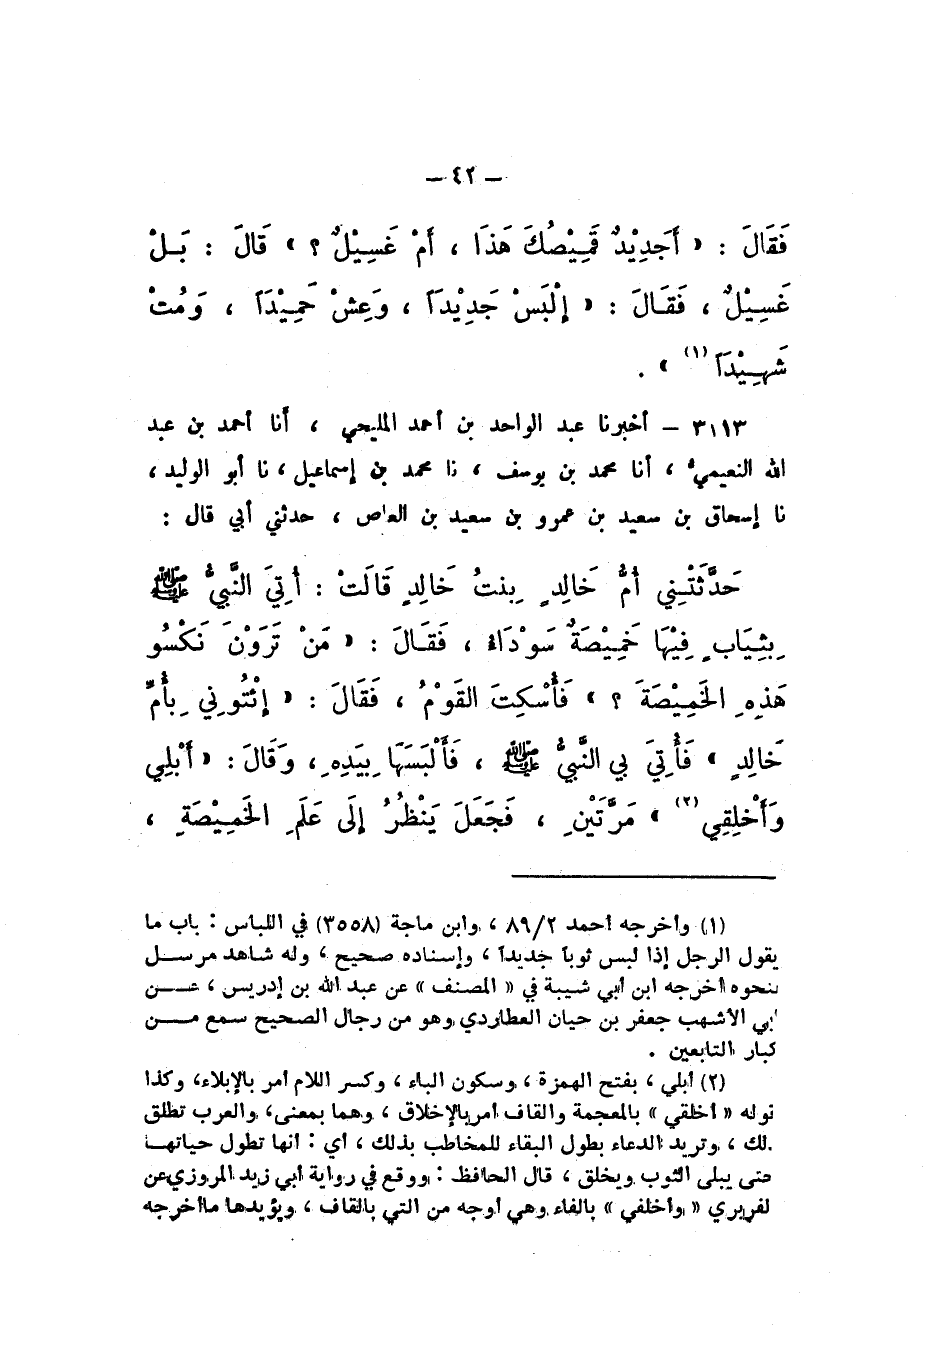 — ٤٢ —
فَقَالَ : « أَجَدِيْدٌ قَمِيْصُكَ هَذَا ، أَمْ غَسِيْلٌ ؟ » قَالَ : بَلْ
غَسِيْلٌ ، فَقَالَ : « إِلْبَسْ جَدِيْدَاً ، وَعِشْ حَمِيْدَاً ، وَمُتْ
شَهِيْدَاً (١) » .
٣١١٣ – أخبرنا عبد الواحد بن أحمد المليحي ، أنا أحمد بن عبد
الله النعيميُّ ، أنا محمد بن يوسف ، نا محمد بن إسماعيل ، نا أبو الوليد ،
نا إسحاق بن سعيد بن عمرو بن سعيد بن العاص ، حدثني أبي قال :
حَدَّثَتْنِي أُمُّ خَالِدٍ بِنتُ خَالِدٍ قَالَتْ : أُتِيَ النَّبِيُّ ﷺ
بِثِيَابٍ فِيْهَا خَمِيْصَةٌ سَوْدَاءُ ، فَقَالَ : « مَنْ تَرَوْنَ نَكْسُو
هَذِهِ الخَمِيْصَةَ ؟ » فَأُسْكِتَ القَوْمُ ، فَقَالَ : « إِئْتُونِي بِأُمِّ
خَالِدٍ » فَأُتِيَ بِي النَّبِيُّ ﷺ ، فَأَلْبَسَهَا بِيَدِهِ ، وَقَالَ : « أَبْلِي
وَأَخْلِقِي (٢) » مَرَّتَيْنِ ، فَجَعَلَ يَنْظُرُ إِلَى عَلَمِ الخَمِيْصَةِ ،
(١) وأخرجه أحمد ٨٩/٢ ، وابن ماجة (٣٥٥٨) في اللباس : باب ما
يقول الرجل إذا لبس ثوباً جديداً ، وإسناده صحيح ، وله شاهد مرسل
بنحوه أخرجه ابن أبي شيبة في « المصنف » عن عبد الله بن إدريس ، عن
أبي الأشهب جعفر بن حيان العطاردي وهو من رجال الصحيح سمع من
كبار التابعين .
(٢) أبلي ، بفتح الهمزة ، وسكون الباء ، وكسر اللام أمر بالإبلاء، وكذا
قوله « أخلقي » بالمعجمة والقاف أمر بالإخلاق ، وهما بمعنى، والعرب تطلق
ذلك ، وتريد الدعاء بطول البقاء للمخاطب بذلك ، أي : أنها تطول حياتها
حتى يبلى الثوب ويخلق ، قال الحافظ : ووقع في رواية أبي زيد المروزي عن
لفربري « وأخلفي » بالفاء وهي أوجه من التي بالقاف ، ويؤيدها ما أخرجه